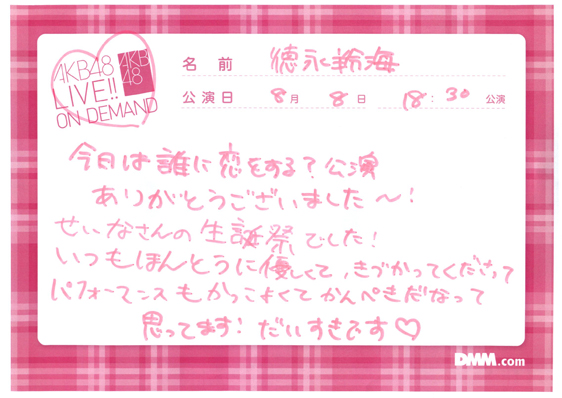 AKB48
LIVE!!
ON DEMAND
AKB
48
名前 徳永羚海
公演日 8月 8日 18:30 公演
今日は誰に恋をする?公演
ありがとうございました〜!
せいなさんの生誕祭でした!
いつもほんとうに優しくて、きづかってくださって
パフォーマンスもかっこよくてかんぺきだなって
思ってます! だいすきです♡
DMM.com